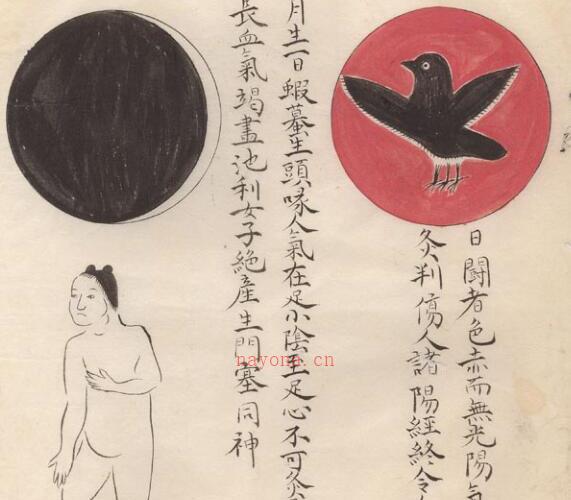 日鬪者色赤而無光陽氣
灸判傷人諸陽經終令
月生一日蝦蟇生頭喙人氣在足小陰至足心不可灸
長血氣竭盡池利女子絶產生門塞同神
nayona.cn